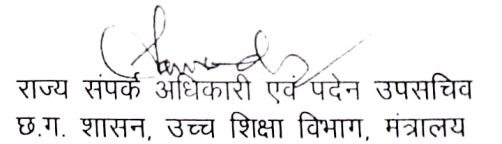 राज्य संपर्क अधिकारी एवं पदेन उपसचिव
छ.ग. शासन, उच्च शिक्षा विभाग, मंत्रालय